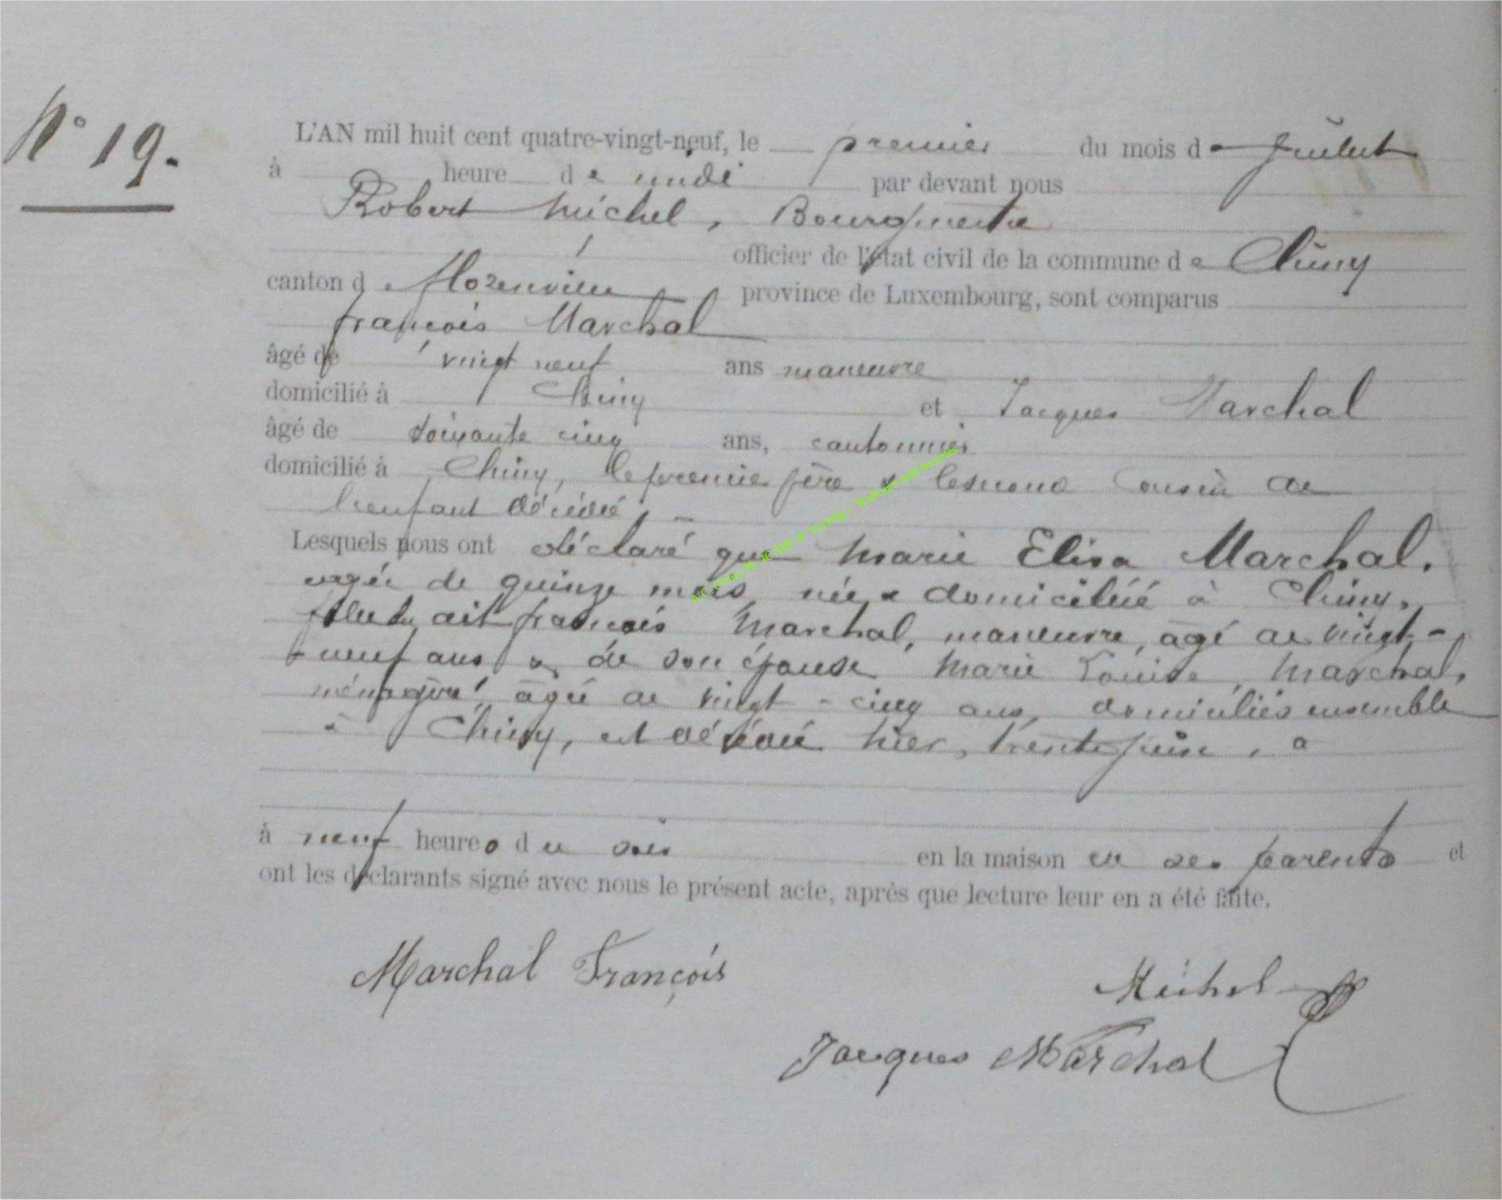 N° 19.
L'AN mil huit cent quatre-vingt-neuf, le premier du mois de Juillet
à heure de midi par devant nous
Robert Michel, Bourgmestre
officier de l'état civil de la commune de Chiny
canton de Florenville province de Luxembourg, sont comparus
françois Marchal
âgé de vingt neuf ans manœuvre
domicilié à Chiny et Jacques Marchal
âgé de soixante cinq ans, cantonnier
domicilié à Chiny, le premier père & le second cousin de
l'enfant décédé
Lesquels nous ont déclaré que Marie Elisa Marchal,
agée de quinze mois, née & domiciliée à Chiny,
fille du dit françois Marchal, manœuvre, âgé de vingt-
-neuf ans & de son épouse Marie Louise Marchal,
ménagère, âgée de vingt-cinq ans, domiciliés ensemble
à Chiny, est décédée hier, trente juin, à
à neuf heures du soir en la maison de ses parents et
ont les déclarants signé avec nous le présent acte, après que lecture leur en a été faite.
Marchal François
Michel
Jacques Marchal